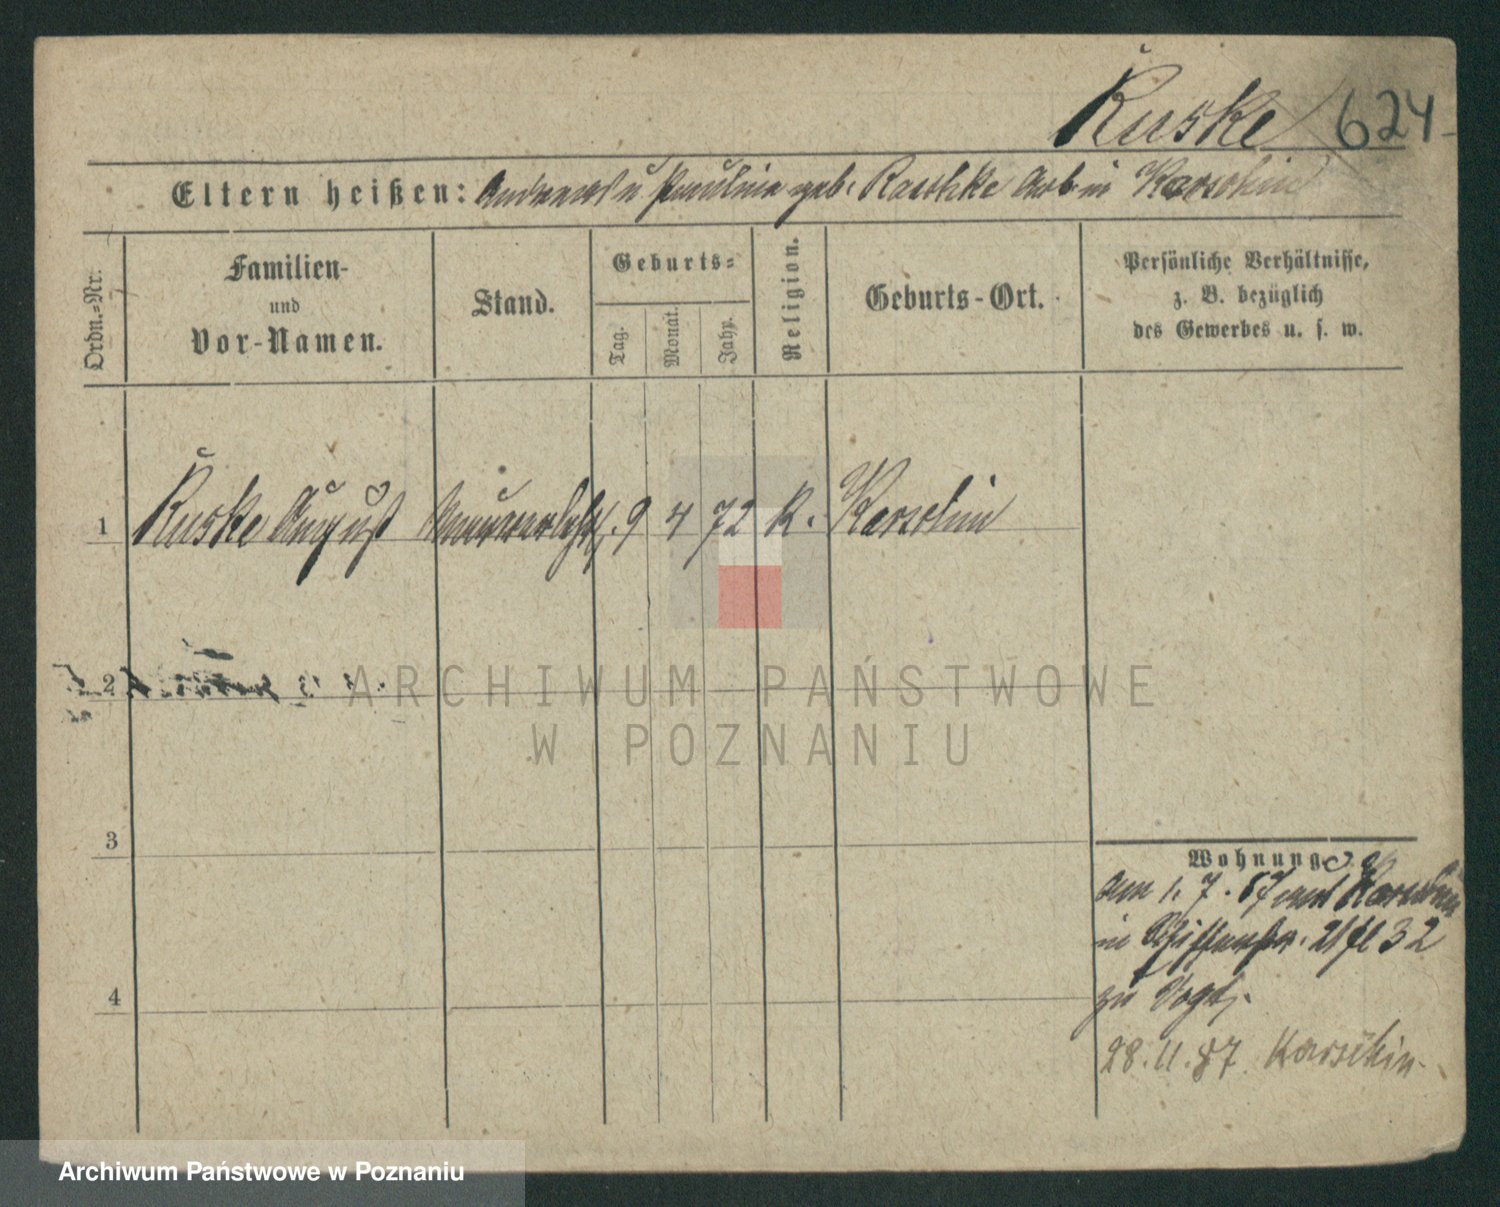 Ruske 624
Eltern heißen: Andreas u Pauline geb. Raschke Arb in Karschin
Ordn.-Nr.
Familien-
und
Vor-Namen.
Stand.
Geburts-
Tag.
Monat.
Jahr.
Religion.
Geburts-Ort.
Persönliche Verhältnisse,
z. B. bezüglich
des Gewerbes u. s. w.
1 Ruske August Maurerlehrl. 9 4 72 K. Karschin
2
3
4
Wohnung
am 1. 7. 87 aus Karschin
in 21 32
zu Vogt.
28. 11. 87. Karschin
ARCHIWUM PAŃSTWOWE
W POZNANIU
Archiwum Państwowe w Poznaniu